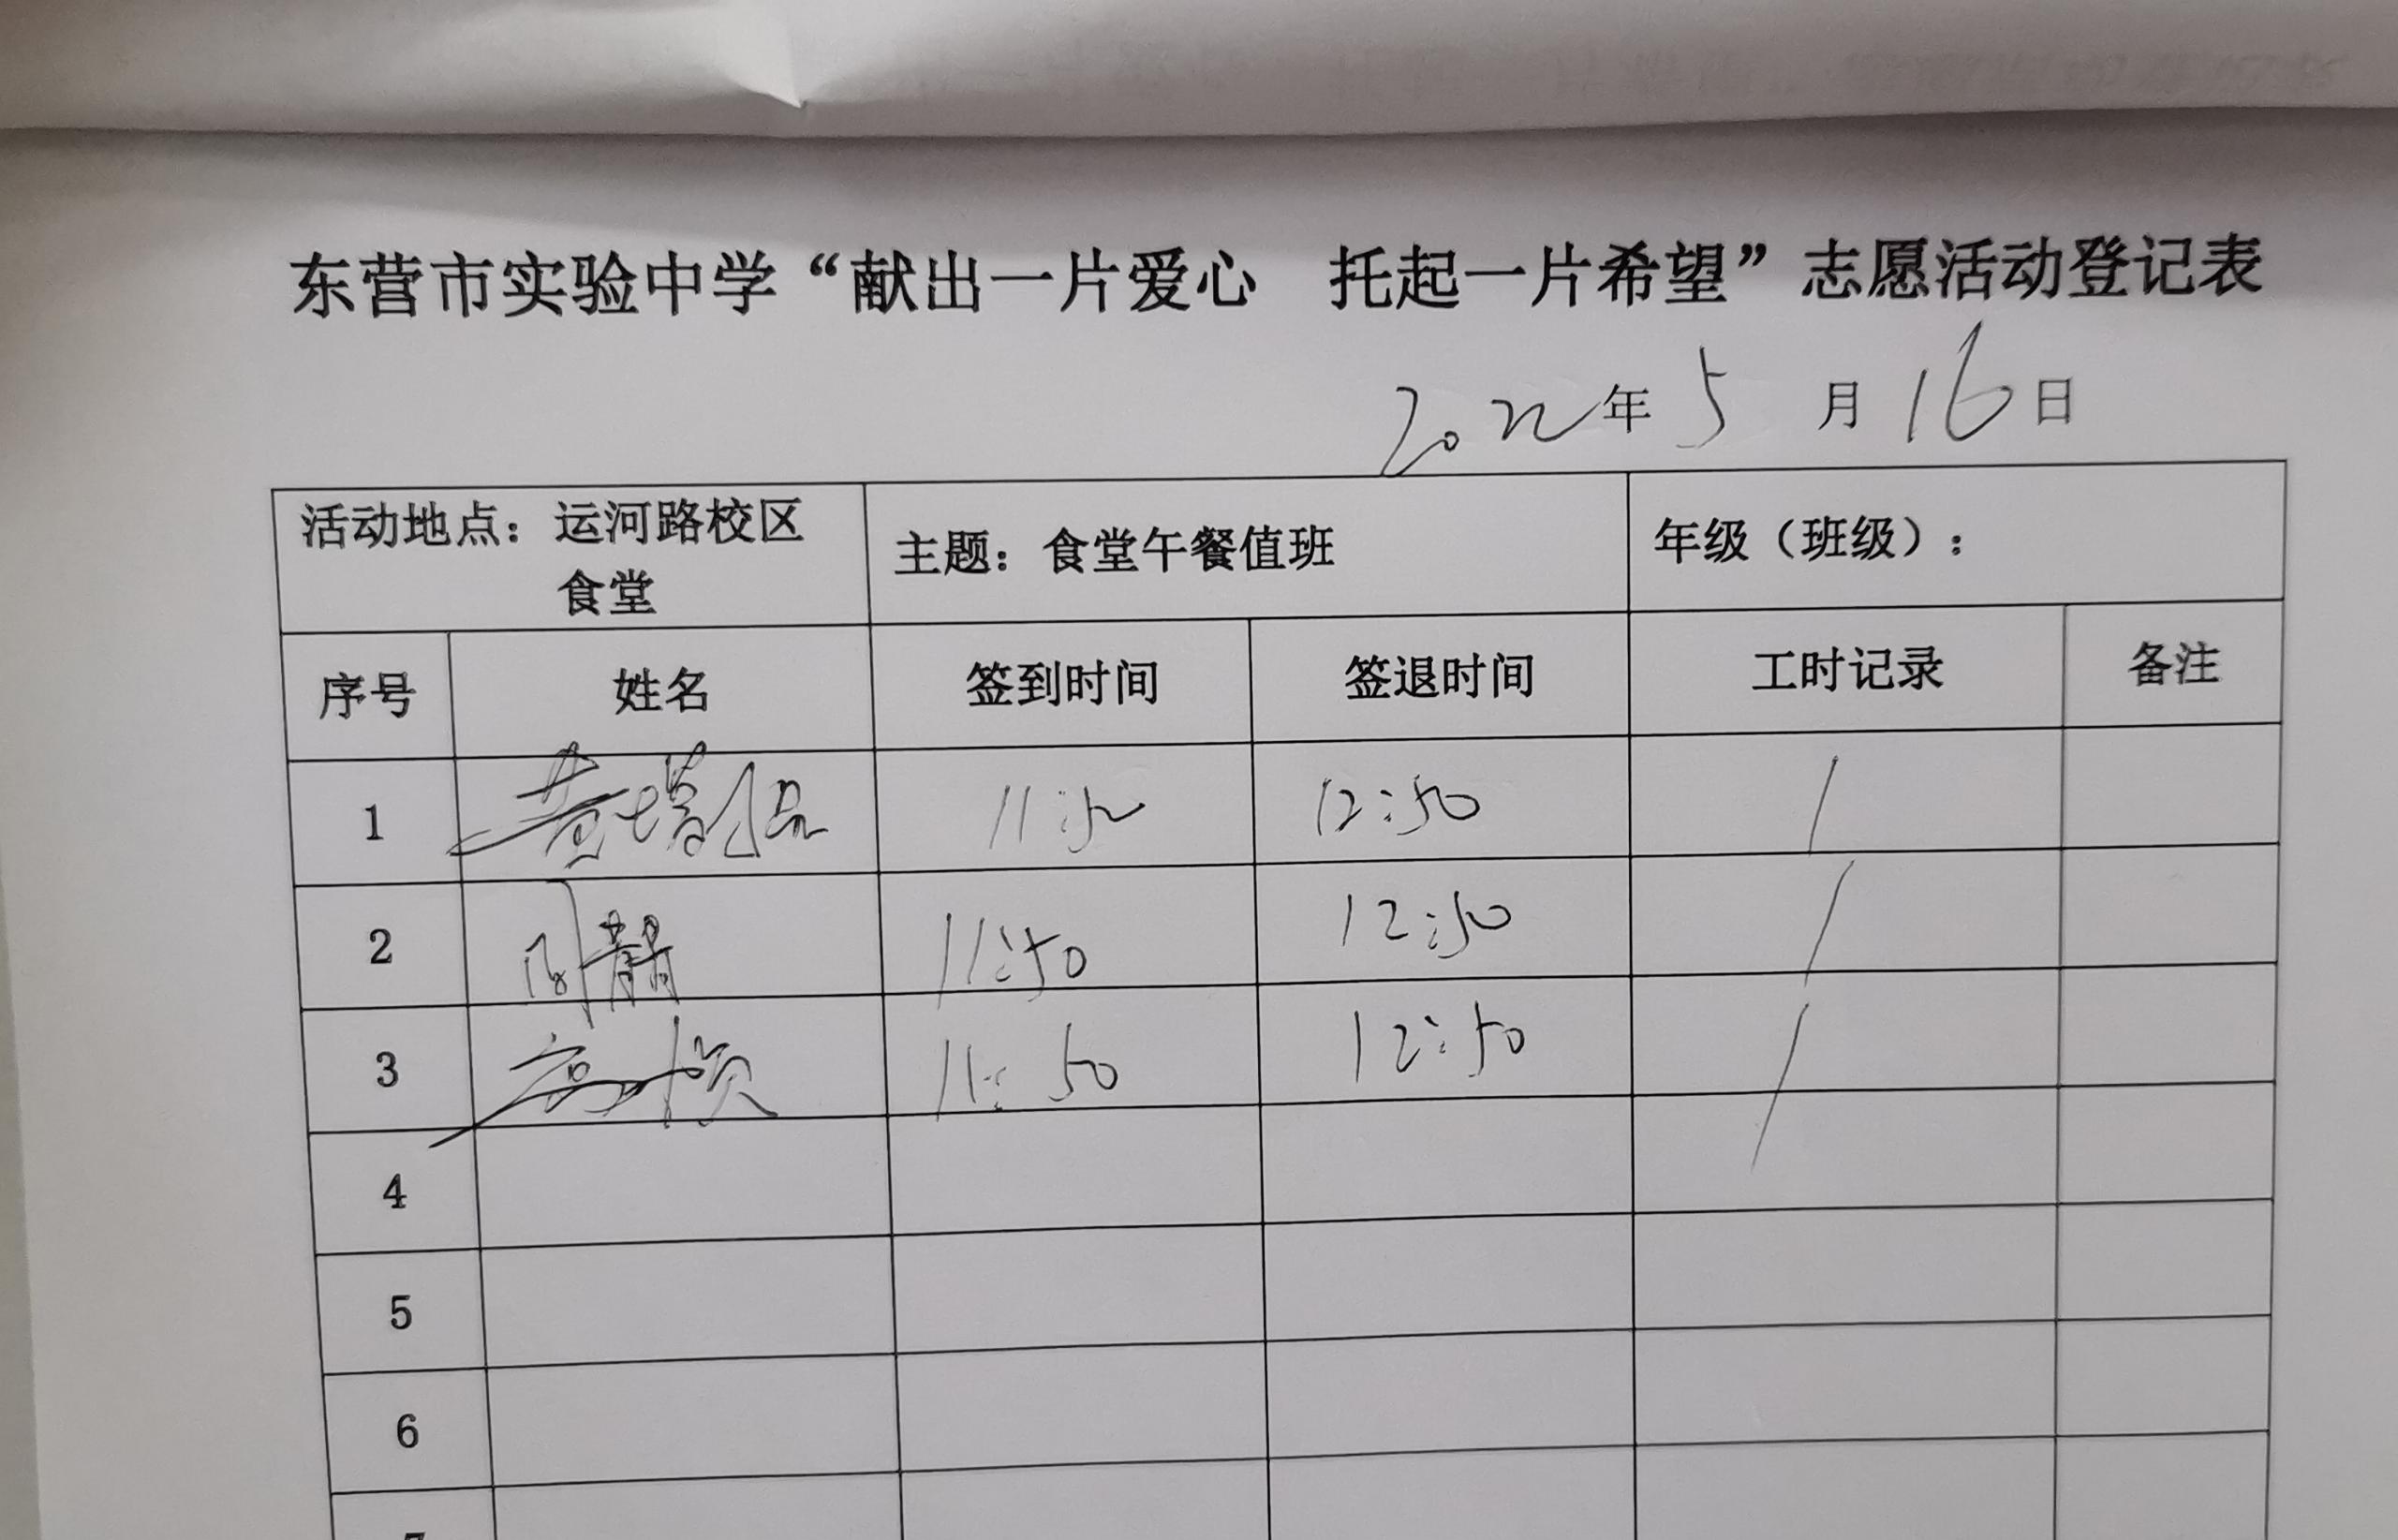 东营市实验中学“献出一片爱心 托起一片希望”志愿活动登记表
2022年5月16日
活动地点：运河路校区食堂 主题：食堂午餐值班 年级（班级）：
序号 姓名 签到时间 签退时间 工时记录 备注
1 11:50 12:50 1
2 周静 11:50 12:50 1
3 11:50 12:50 1
4
5
6